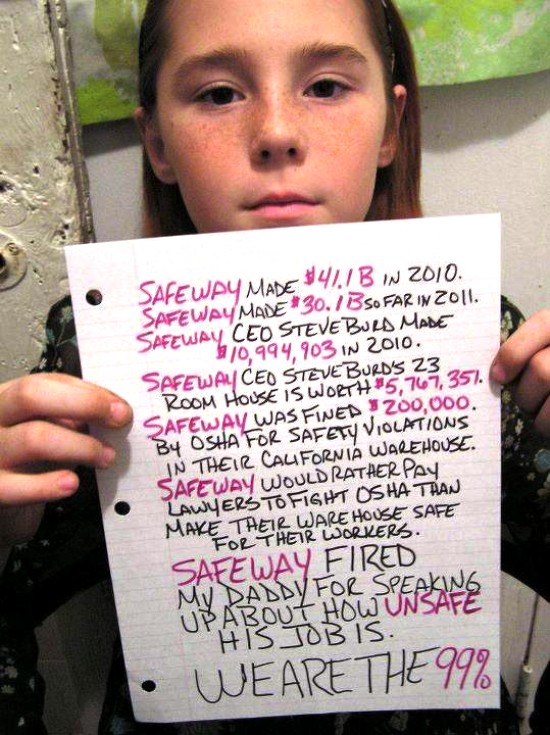 SAFEWAY MADE $41.1 B IN 2010.
SAFEWAY MADE $30.1B SO FAR IN 2011.
SAFEWAY CEO STEVE BURD MADE
$10,994,903 IN 2010.
SAFEWAY CEO STEVE BURD'S 23
ROOM HOUSE IS WORTH $5,767,351.
SAFEWAY WAS FINED $200,000.
BY OSHA FOR SAFETY VIOLATIONS
IN THEIR CALIFORNIA WAREHOUSE.
SAFEWAY WOULD RATHER PAY
LAWYERS TO FIGHT OSHA THAN
MAKE THEIR WAREHOUSE SAFE
FOR THEIR WORKERS.
SAFEWAY FIRED
MY DADDY FOR SPEAKING
UP ABOUT HOW UNSAFE
HIS JOB IS.
WE ARE THE 99%